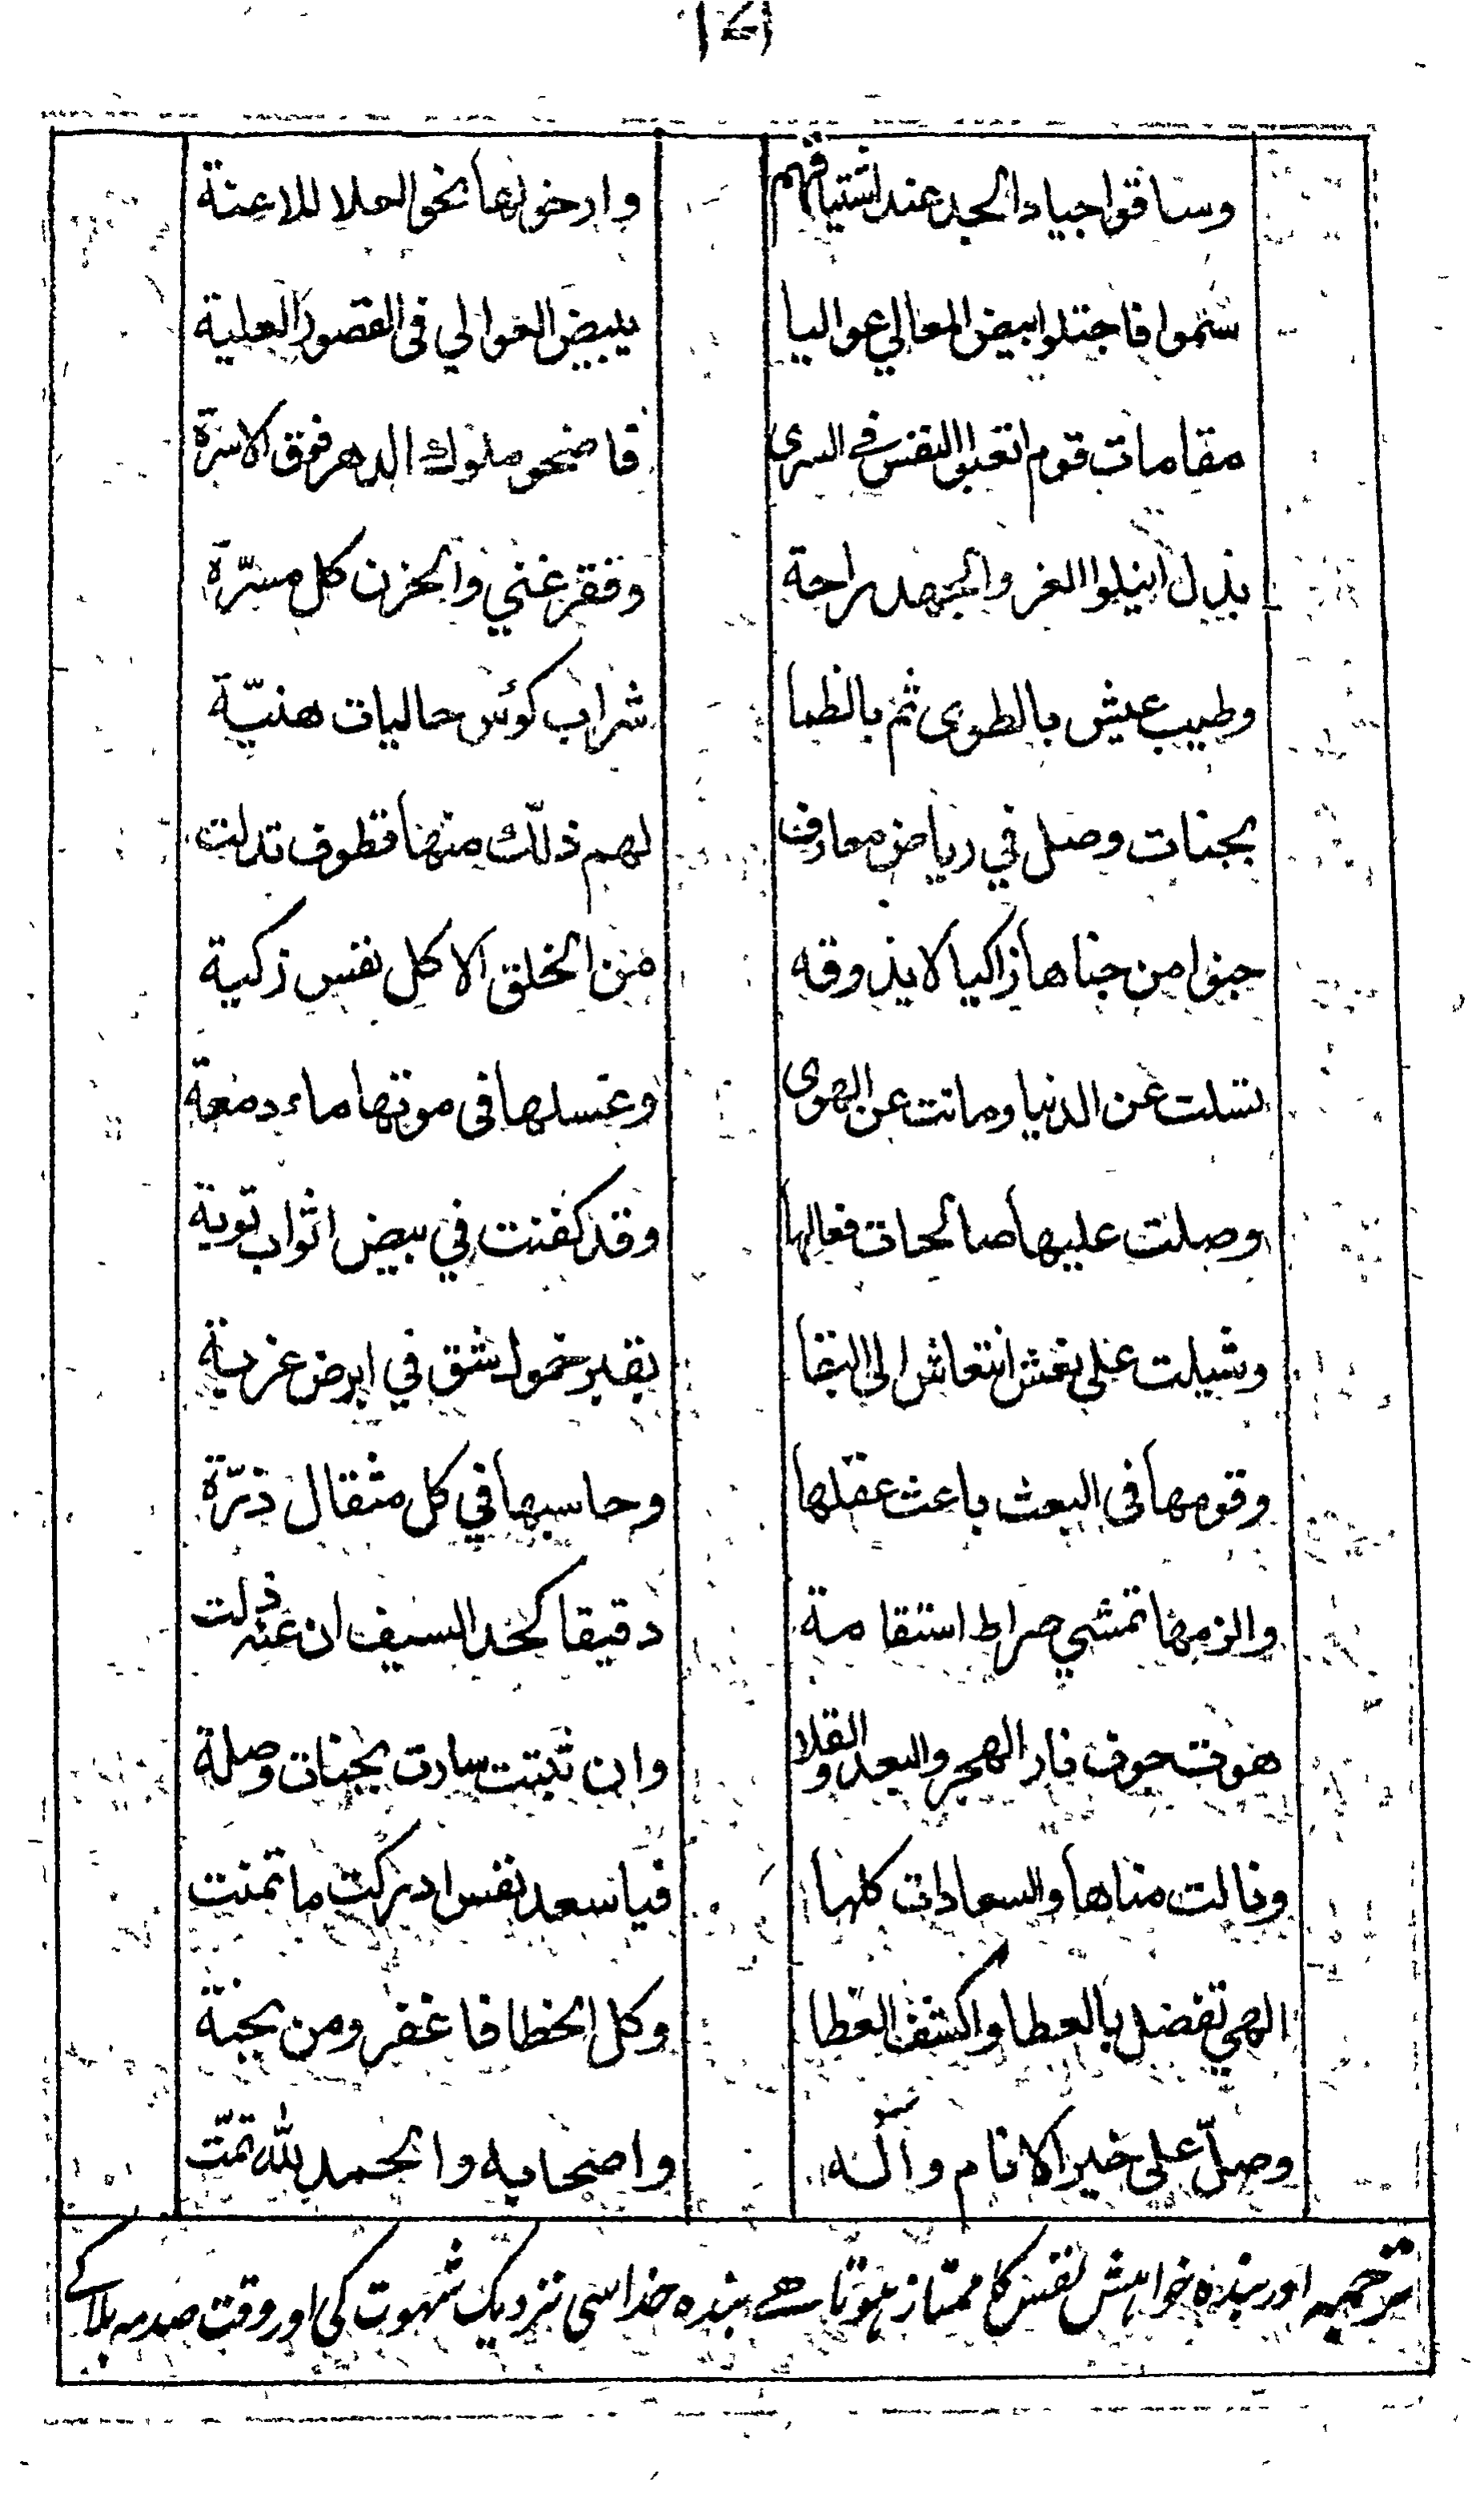 وساقوا جياد الجد عند اشتياقهم وارخوا لها نحو العلا للاعنة
سموا فاجتلوا بيض المعالي عواليا ببيض الغوالي فى القصور العلية
مقامات قوم اتعبوا النفس فى السرى فاضحو ملوك الدهر فوق الاسرة
بذل انيلوا العز والجهد راحة وفقر غني والحزن كل مسرّة
وطيب عيش بالطوى ثم بالظما شراب كوئس حاليات هنيّة
بجنات وصل في رياض معارف لهم ذلّلت منها قطوف تدلت
جنوا من جناها زاكيا لا يذوقه من الخلق الا كل نفس زكية
تسلت عن الدنيا وماتت عن الهوى وغسلها فى موتها ماء دمعة
وصلت عليها صالحات فعالها وقد كفنت في بيض اثواب توبة
وشيلت على نعش انتعاش الى البقا بقبر خمول شق في ارض غربة
وقومها فى البعث باعث عقلها وحاسبها في كل مثقال ذرّة
والزمها تمشي صراط استقامة دقيقا كحد السيف ان عنه ذلت
هوت خوف نار الهجر والبعد والقلا وان تثبتت سارت بجنات وصلة
ونالت مناها والسعادات كلها فيا سعد نفس ادركت ما تمنت
الهي تفضل بالعطا واكشف الغطا وكل الخطا فاغفر ومن بجنة
وصلّ على خير الانام وآله واصحابه والحمد لله تمّت
ترجمہ اور بندہ خواہش نفس کا ممتاز ہوتا ہے بندہ خدا سی نزدیک شہوت کی اور وقت صدمہ بلا کے